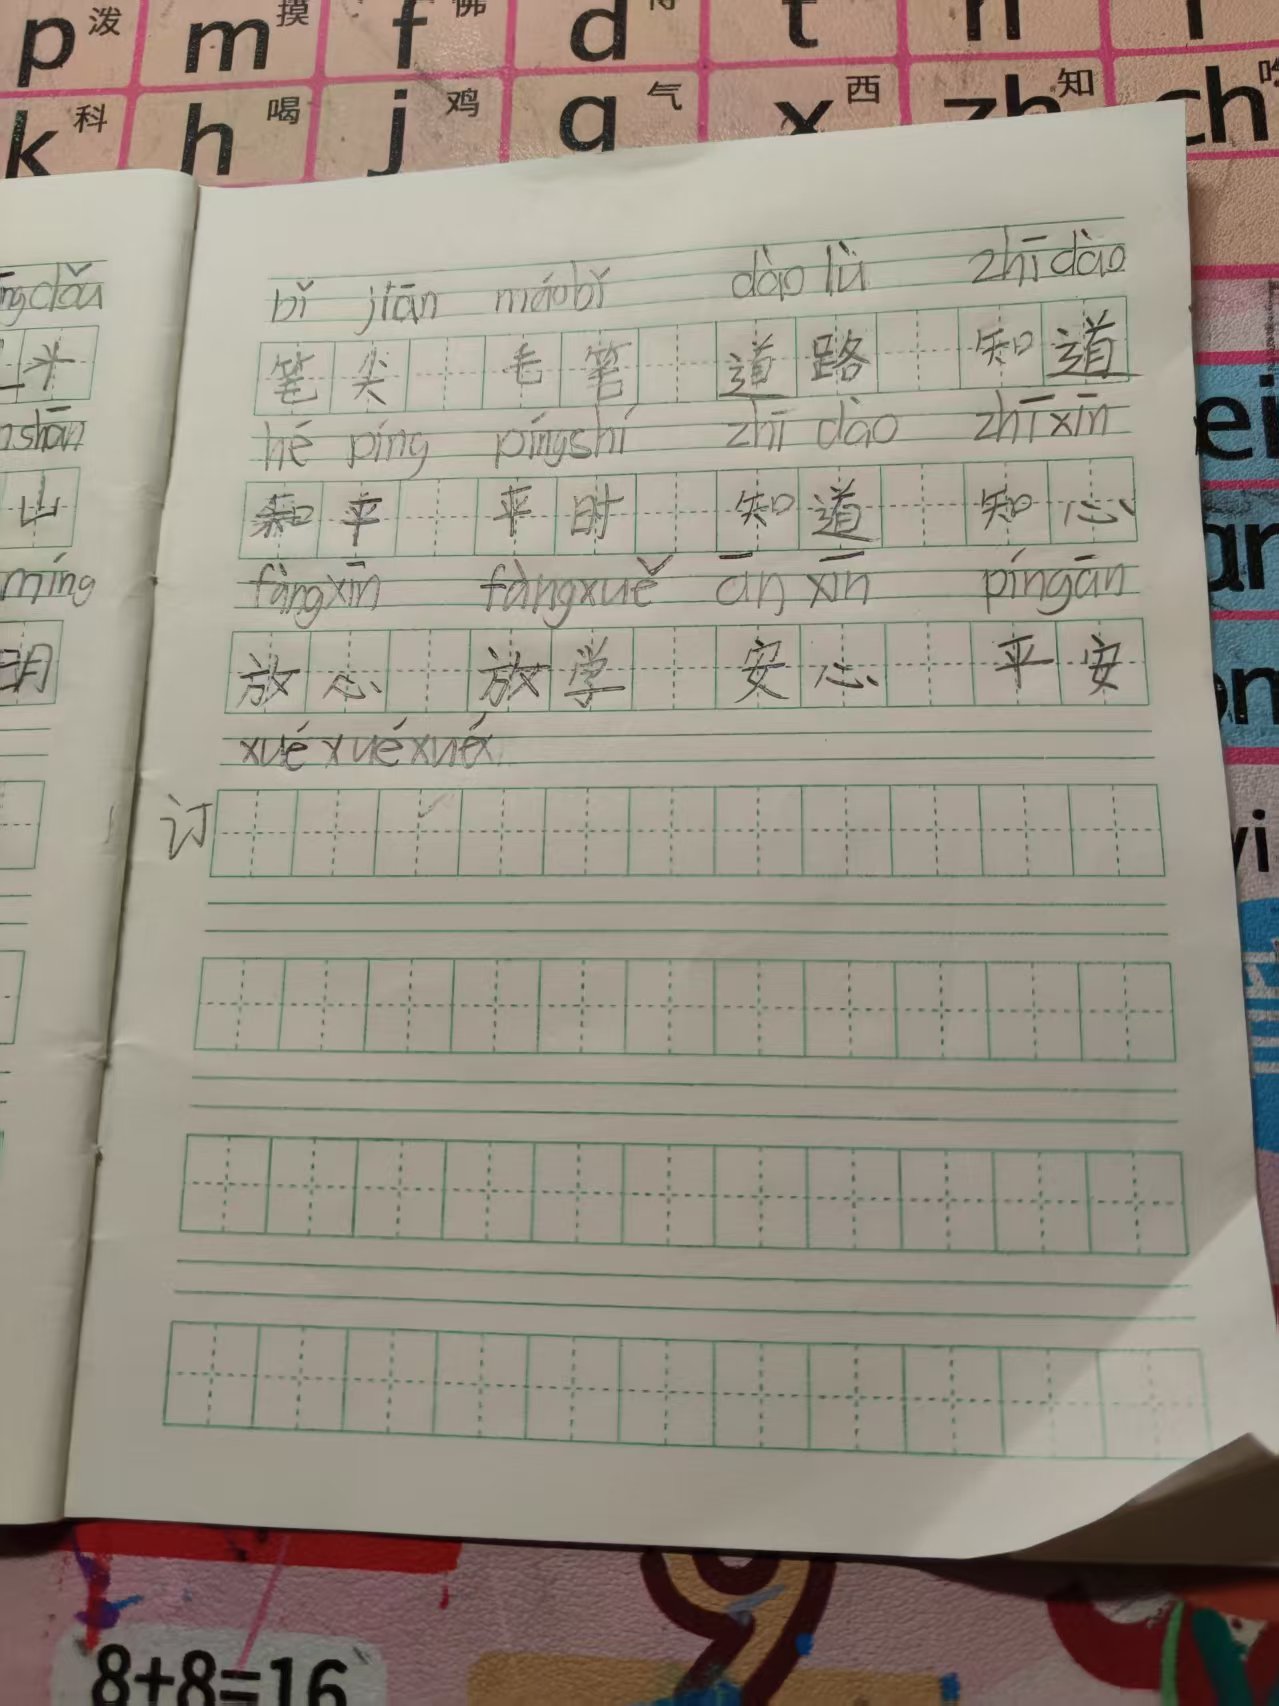 p 泼 m 摸 f 佛 d t n l
k 科 h 喝 j 鸡 q 气 x 西 zh 知 ch 吃
bǐ jiān máobǐ dào lù zhīdào
笔尖 毛笔 道路 知道
hé píng píngshí zhī dào zhīxīn
和平 平时 知道 知心
fàngxīn fàngxuě ān xīn píngān
放心 放学 安心 平安
xué xué xué
订
ngdǒu
斗
shān
山
míng
明
8+8=16
9